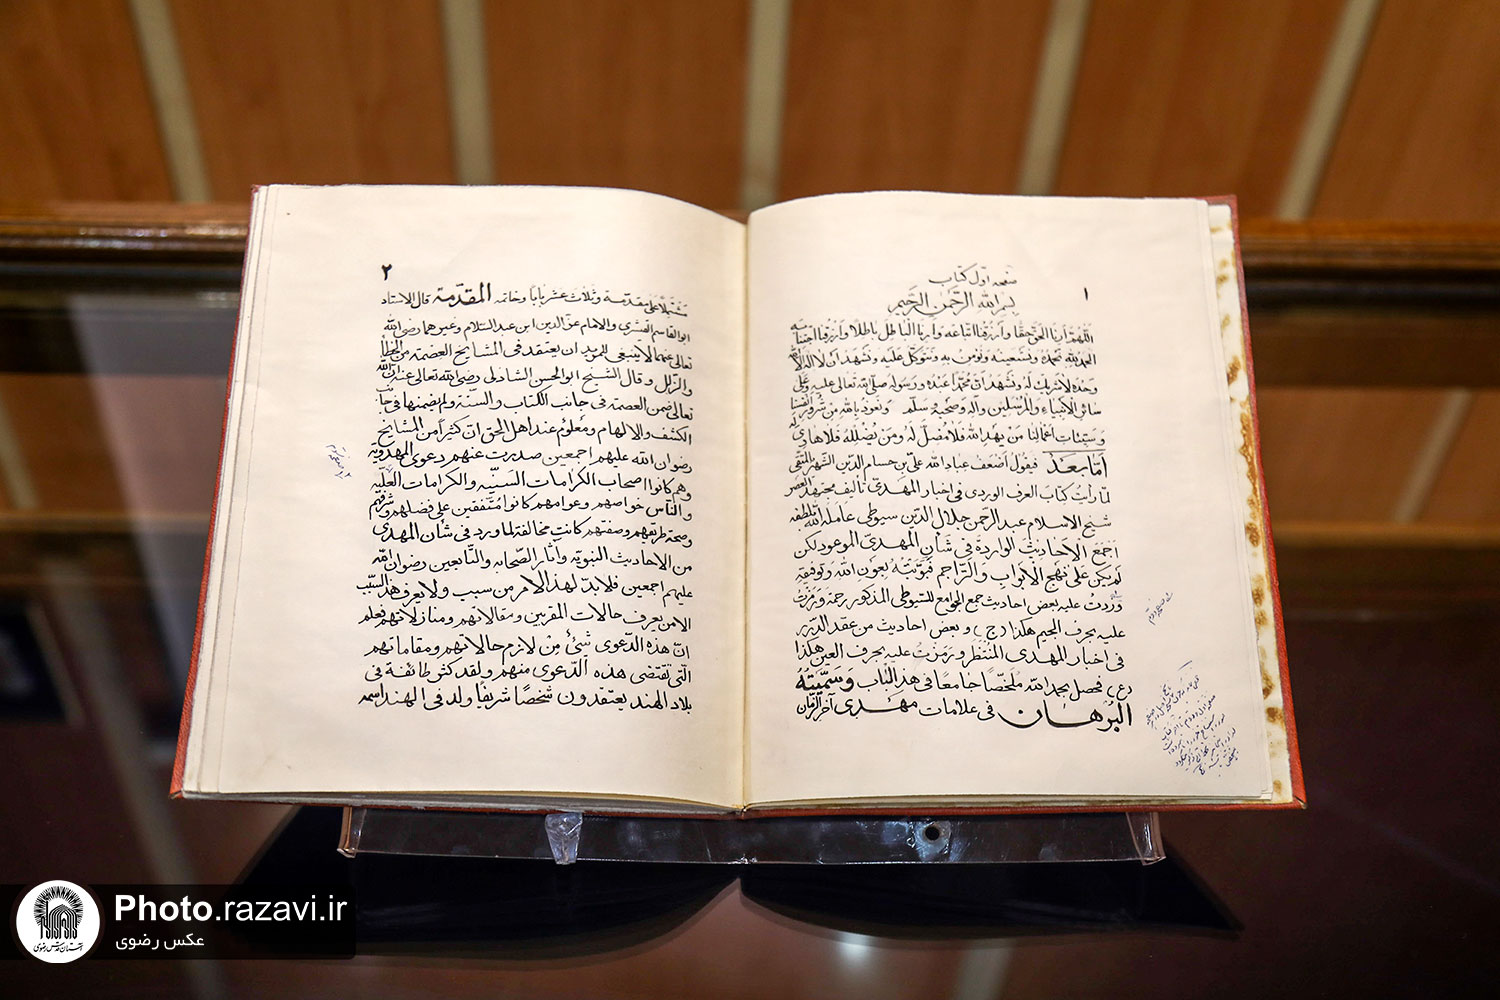 صفحه اوّل کتاب
۱
بسم الله الرّحمن الرّحیم
اللّهمّ أرنا الحقّ حقّا وارزقنا اتّباعه وأرنا الباطل باطلا وارزقنا اجتنابه
الحمد لله نحمده ونستعینه ونؤمن به ونتوکّل علیه ونشهد ان لا اله الّا الله
وحده لا شریک له ونشهد انّ محمّدا عبده ورسوله صلّی الله تعالی علیه وعلی
سائر الانبیاء والمرسلین وآله وصحبه وسلّم ونعوذ بالله من شرور انفسنا
وسیّئات أعمالنا من یهد الله فلا مضلّ له ومن یضلله فلا هادی له
امّا بعد فیقول اضعف عباد الله علیّ بن حسام الدّین الشّهیر بالمتّقی
لما رأیت کتاب العرف الوردی فی اخبار المهدی تألیف مجتهد العصر
شیخ الاسلام عبد الرّحمن جلال الدّین سیوطی عامله الله بلطفه
اجمع الاحادیث الواردة فی شأن المهدی الموعود لکن
لم یکن علی نهج الابواب والتّراجم فبوّبته بعون الله وتوفیقه
وزدت علیه بعض احادیث جمع الجوامع للسّیوطی المذکور رحمه ورمزت
علیه بحرف الجیم هکذا (ج) وبعض احادیث من عقد الدّرر
فی اخبار المهدی المنتظر ورمزت علیه بحرف العین هکذا
(ع) فحصل بحمد الله ملخّصا جامعا فی هذا الباب وسمّیته
البرهان فی علامات مهدی آخر الزّمان
۲
مشتملا علی مقدّمة وثلاث عشر بابا وخاتمه المقدّمة قال الاستاد
ابو القاسم القشری والامام عزّ الدین ابن عبد السّلام وغیرهما رضی الله
تعالی عنهما لا ینبغی للمرید ان یعتقد فی المشایخ العصمة من الخطا
والزّلل وقال الشّیخ ابو الحسن الشاذلی رضی الله تعالی عنه انّ الله
تعالی ضمن العصمة فی جانب الکتاب والسّنّة ولم یضمنها فی جانب
الکشف والالهام ومعلوم عند اهل الحق ان کثیرا من المشایخ
رضوان الله علیهم اجمعین صدرت عنهم دعوی المهدویّة
وهم کانوا اصحاب الکرامات السّنیّه والکرامات العلّیّه
والنّاس خواصهم وعوامهم کانوا متّفقین علی فضلهم وشرفهم
وصحة طریقهم وصفتهم کانت مخالفة لما ورد فی شأن المهدی
من الاحادیث النبویّه وآثار الصّحابه والتّابعین رضوان الله
علیهم اجمعین فلا بدّ لهذا الامر من سبب ولا یعرف هذا السّبب
الا من یعرف حالات المقربین ومقالاتهم ومنازلاتهم فعلم
انّ هذه الدّعوی شئ من لازم حالاتهم ومقاماتهم
الّتی تقتضی هذه الدّعوی منهم ولقد کثر طائفة فی
بلاد الهند یعتقدون شخصا شریفا ولد فی الهند اسمه
Photo.razavi.ir
عکس رضوی
آستان قدس رضوی